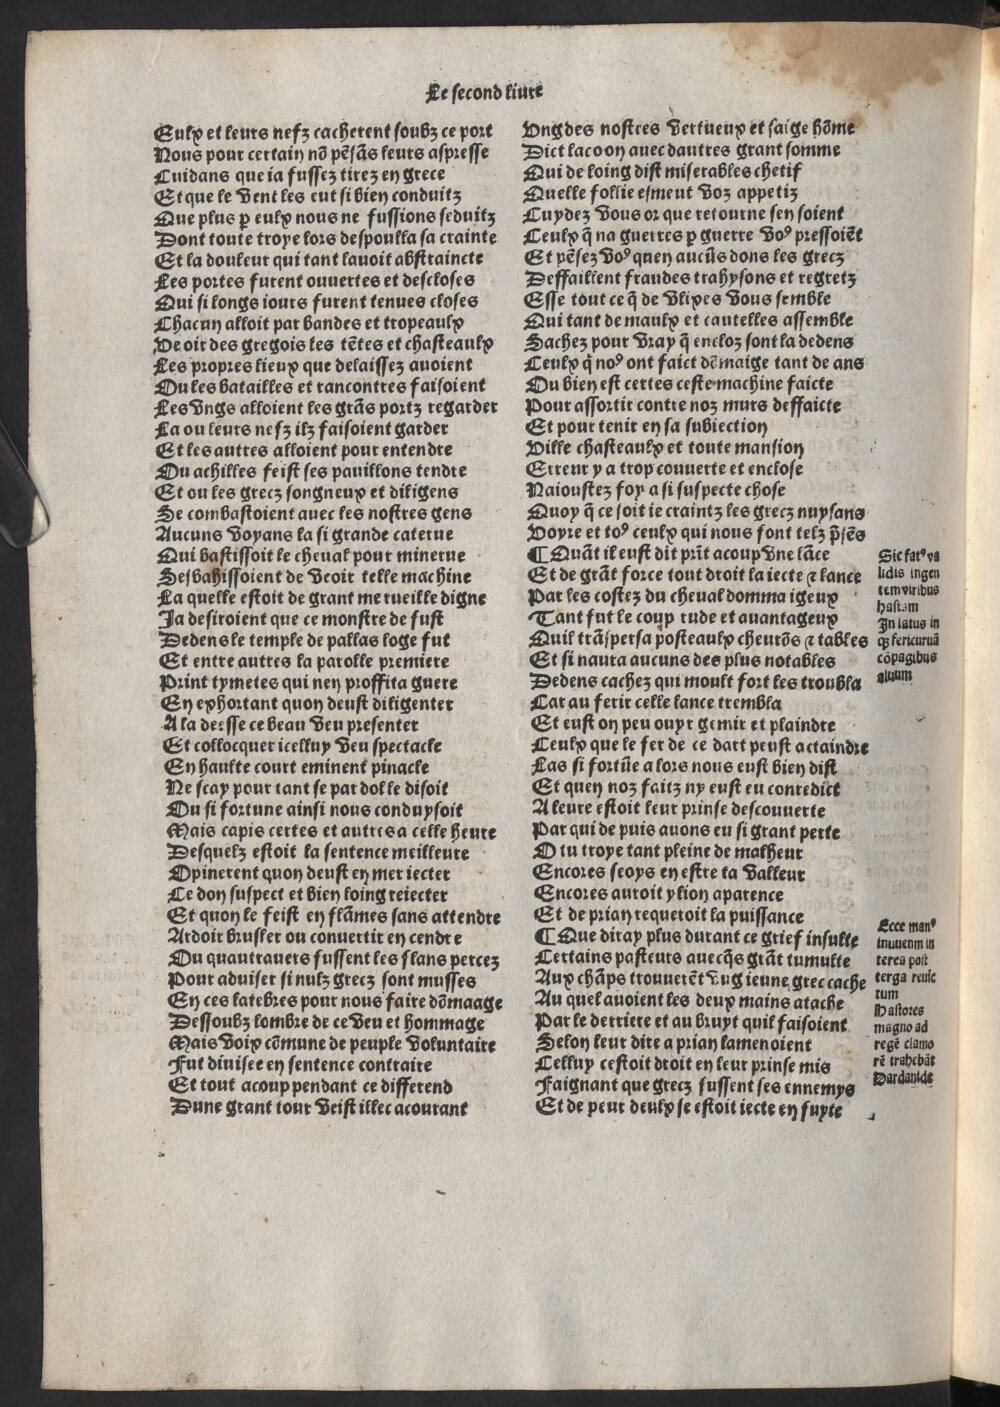 Le second liure
Eulx et leurs nefz cacherent soubz ce port
Nous pour certain nō pēsās leurs aspresse
Cuidans que ia fussez tirez en grece
Et que le vent les eut si bien conduitz
Que plus p̲ eulx nous ne fussions seduitz
Dont toute troye lors despoulla sa crainte
Et la douleur qui tant lauoit abstraincte
Les portes furent ouuertes et descloses
Qui si longs iours furent tenues closes
Chacun alloit par bandes et tropeaulx
Veoir des gregois les tētes et chasteaulx
Les propres lieux que delaissez auoient
Ou les batailles et rancontres faisoient
Les vngs alloient les grās portz regarder
La ou leurs nefz ilz faisoient garder
Et les autres alloient pour entendre
Ou achilles feist ses pauillons tendre
Et ou les grecz songneux et diligens
Se combastoient auec les nostres gens
Aucuns voyans la si grande caterue
Qui bastissoit le cheual pour minerue
Sesbahissoient de veoir telle machine
La quelle estoit de grant merueille digne
Ja desiroient que ce monstre de fust
Dedens le temple de pallas loge fut
Et entre autres la parolle premiere
Print tymetes qui nen proffita guere
En exhortant quon deust diligenter
A la deesse ce beau veu presenter
Et collocquer icelluy veu spectacle
En haulte court eminent pinacle
Ne scay pour tant se par dol le disoit
Ou si fortune ainsi nous conduysoit
Mais capis certes et autres a celle heure
Desquelz estoit la sentence meilleure
Opinerent quon deust en mer iecter
Ce don suspect et bien loing reiecter
Et quon le feist en flāmes sans attendre
Ardoir brusler ou conuertir en cendre
Ou quautrauers fussent les flans percez
Pour aduiser si nulz grecz sont musses
En ces latebres pour nous faire dōmaage
Dessoubz lombre de ce veu et hommage
Mais voix cōmune de peuple voluntaire
Fut diuisee en sentence contraire
Et tout acoup pendant ce differend
Dune grant tour veist illec acourant
Vng des nostres vertueux et saige hōme
Dict lacoon auec dautres grant somme
Qui de loing dist miserables chetif
Quelle follie esmeut voz appetiz
Cuydez vous or que retourne sen soient
Ceulx q̄ na guerres p̲ guerre voꝰ pressoiēt
Et pēsez voꝰ quen aucūs dons les grecz
Deffaillent fraudes trahysons et regretz
Esse tout ce q̄ de vlixes vous semble
Qui tant de maulx et cautelles assemble
Sachez pour vray q̄ encloz sont la dedens
Ceulx q̄ noꝰ ont faict dēmaige tant de ans
Ou bien est certes ceste machine faicte
Pour assortir contre noz murs deffaicte
Et pour tenir en sa subiection
Ville chasteaulx et toute mansion
Erreur y a trop couuerte et enclose
Naioustez foy a si suspecte chose
Quoy q̄ ce soit ie craintz les grecz nuysans
Voyre et toꝰ ceulx qui nous font telz p̄sēs
¶ Quāt il eust dit prīt acoup vne lāce
Et de grāt force tout droit la iecte ⁊ lance
Par les costez du cheual dommaigeux
Tant fut le coup rude et auantageux
Quil trāspersa posteaulx cheurōs ⁊ tables
Et si naura aucuns des plus notables
Dedens cachez qui moult fort les troubla
Car au ferir celle lance trembla
Et eust on peu ouyr gemir et plaindre
Ceulx que le fer de ce dart peust actaindre
Las si fortūe a lors nous eust bien dist
Et quen noz faitz ny eust eu contredict
A leure estoit leur prinse descouuerte
Par qui de puis auons eu si grant perte
O tu troye tant pleine de malheur
Encores seoys en estre ta valleur
Encores auroit ylion aparence
Et de prian requeroit la puissance
¶ Que diray plus durant ce grief insulte
Certains pasteurs auecq̄s grāt tumulte
Aux chāps trouuerēt vng ieune grec cache
Au quel auoient les deux mains atache
Par le derriere et au bruyt quil faisoient
Selon leur dite a prian lamenoient
Celluy cestoit droit en leur prinse mis
Faignant que grecz fussent ses ennemys
Et de peur deulx se estoit iecte en fuyte
Sic fatꝰ va
lidis ingen
tem viribus
hastam
In latus in
q̄ fericuruā
cōpagibus
aluum
Ecce manꝰ
inuuenm in
terea post
terga reuic
tum
Pastores
magno ad
regē clamo
rē trahebāt
Dardanide